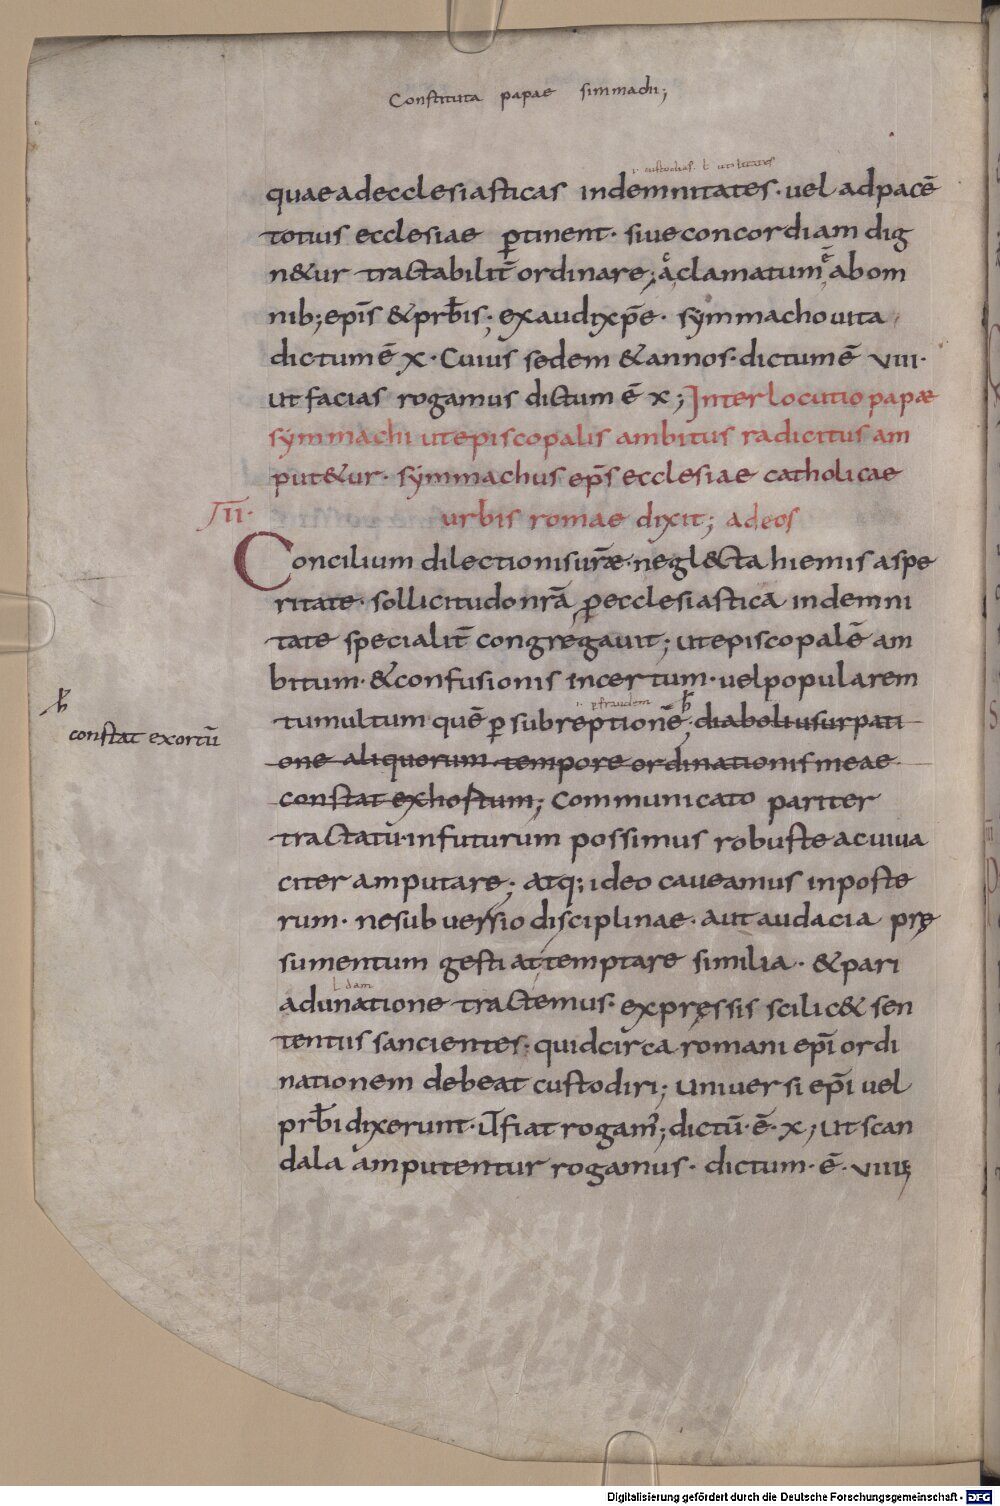 Constituta papae simmachi;
.i. custodias. ł utilitates
quae ad ecclesiasticas indemnitates· vel ad pacē
totius ecclesiae ꝑtinent· sive concordiam dig
n&ur tractabilit̄ ordinare; áclamatum ē ab om
nib; ep̄is & prb̄is; exaudi xp̄e· symmacho vita
dictum ē x· Cuius sedem & annos· dictum ē viii·
ut facias rogamus dictum ē x; Interlocutio papæ
symmachi ut episcopalis ambitus radicitus am
put&ur· symmachus ep̄s ecclesiae catholicae
III· urbis romae dixit; ad eos
Concilium dilectionis ur̄ae· negl&cta hiemis aspe
ritate· sollicitudo nr̄a ꝑ ecclesiastica indemni
tate specialit̄ congregavit; ut episcopalē am
bitum· & confusionis incertum· vel popularem
.i. ꝑ fraudem
tumultum quē ꝑ subreptionē; diaboli usurpati
one aliquorum tempore ordinationis meae
constat exortū
constat exhostum; Communicato pariter
tractatu· in futurum possimus robuste ac viva
citer amputare; Atq; ideo caveamus in poste
rum· ne subversio disciplinae· aut audacia prę
sumentum gesti attemptare similia· & pari
ł dam
adunatione tractemus· expressis scilic& sen
tentiis sancientes· quid circa romani ep̄i ordi
nationem debeat custodiri; Universi ep̄i vel
prb̄i dixerunt· Ut fiat rogam'; dictū· ē· x; Ut scan
dala amputentur rogamus· dictum· ē· viiii;
Digitalisierung gefördert durch die Deutsche Forschungsgemeinschaft - DFG